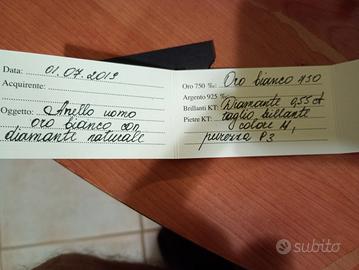 Data: 01.07.2019
Acquirente:
Oggetto: Anello uomo
oro bianco con
diamante naturale
Oro 750 ‰: Oro bianco 750
Argento 925 ‰
Brillanti KT: Diamante 0,55 ct
Pietre KT: taglio brillante
colore H,
purezza P3
subito